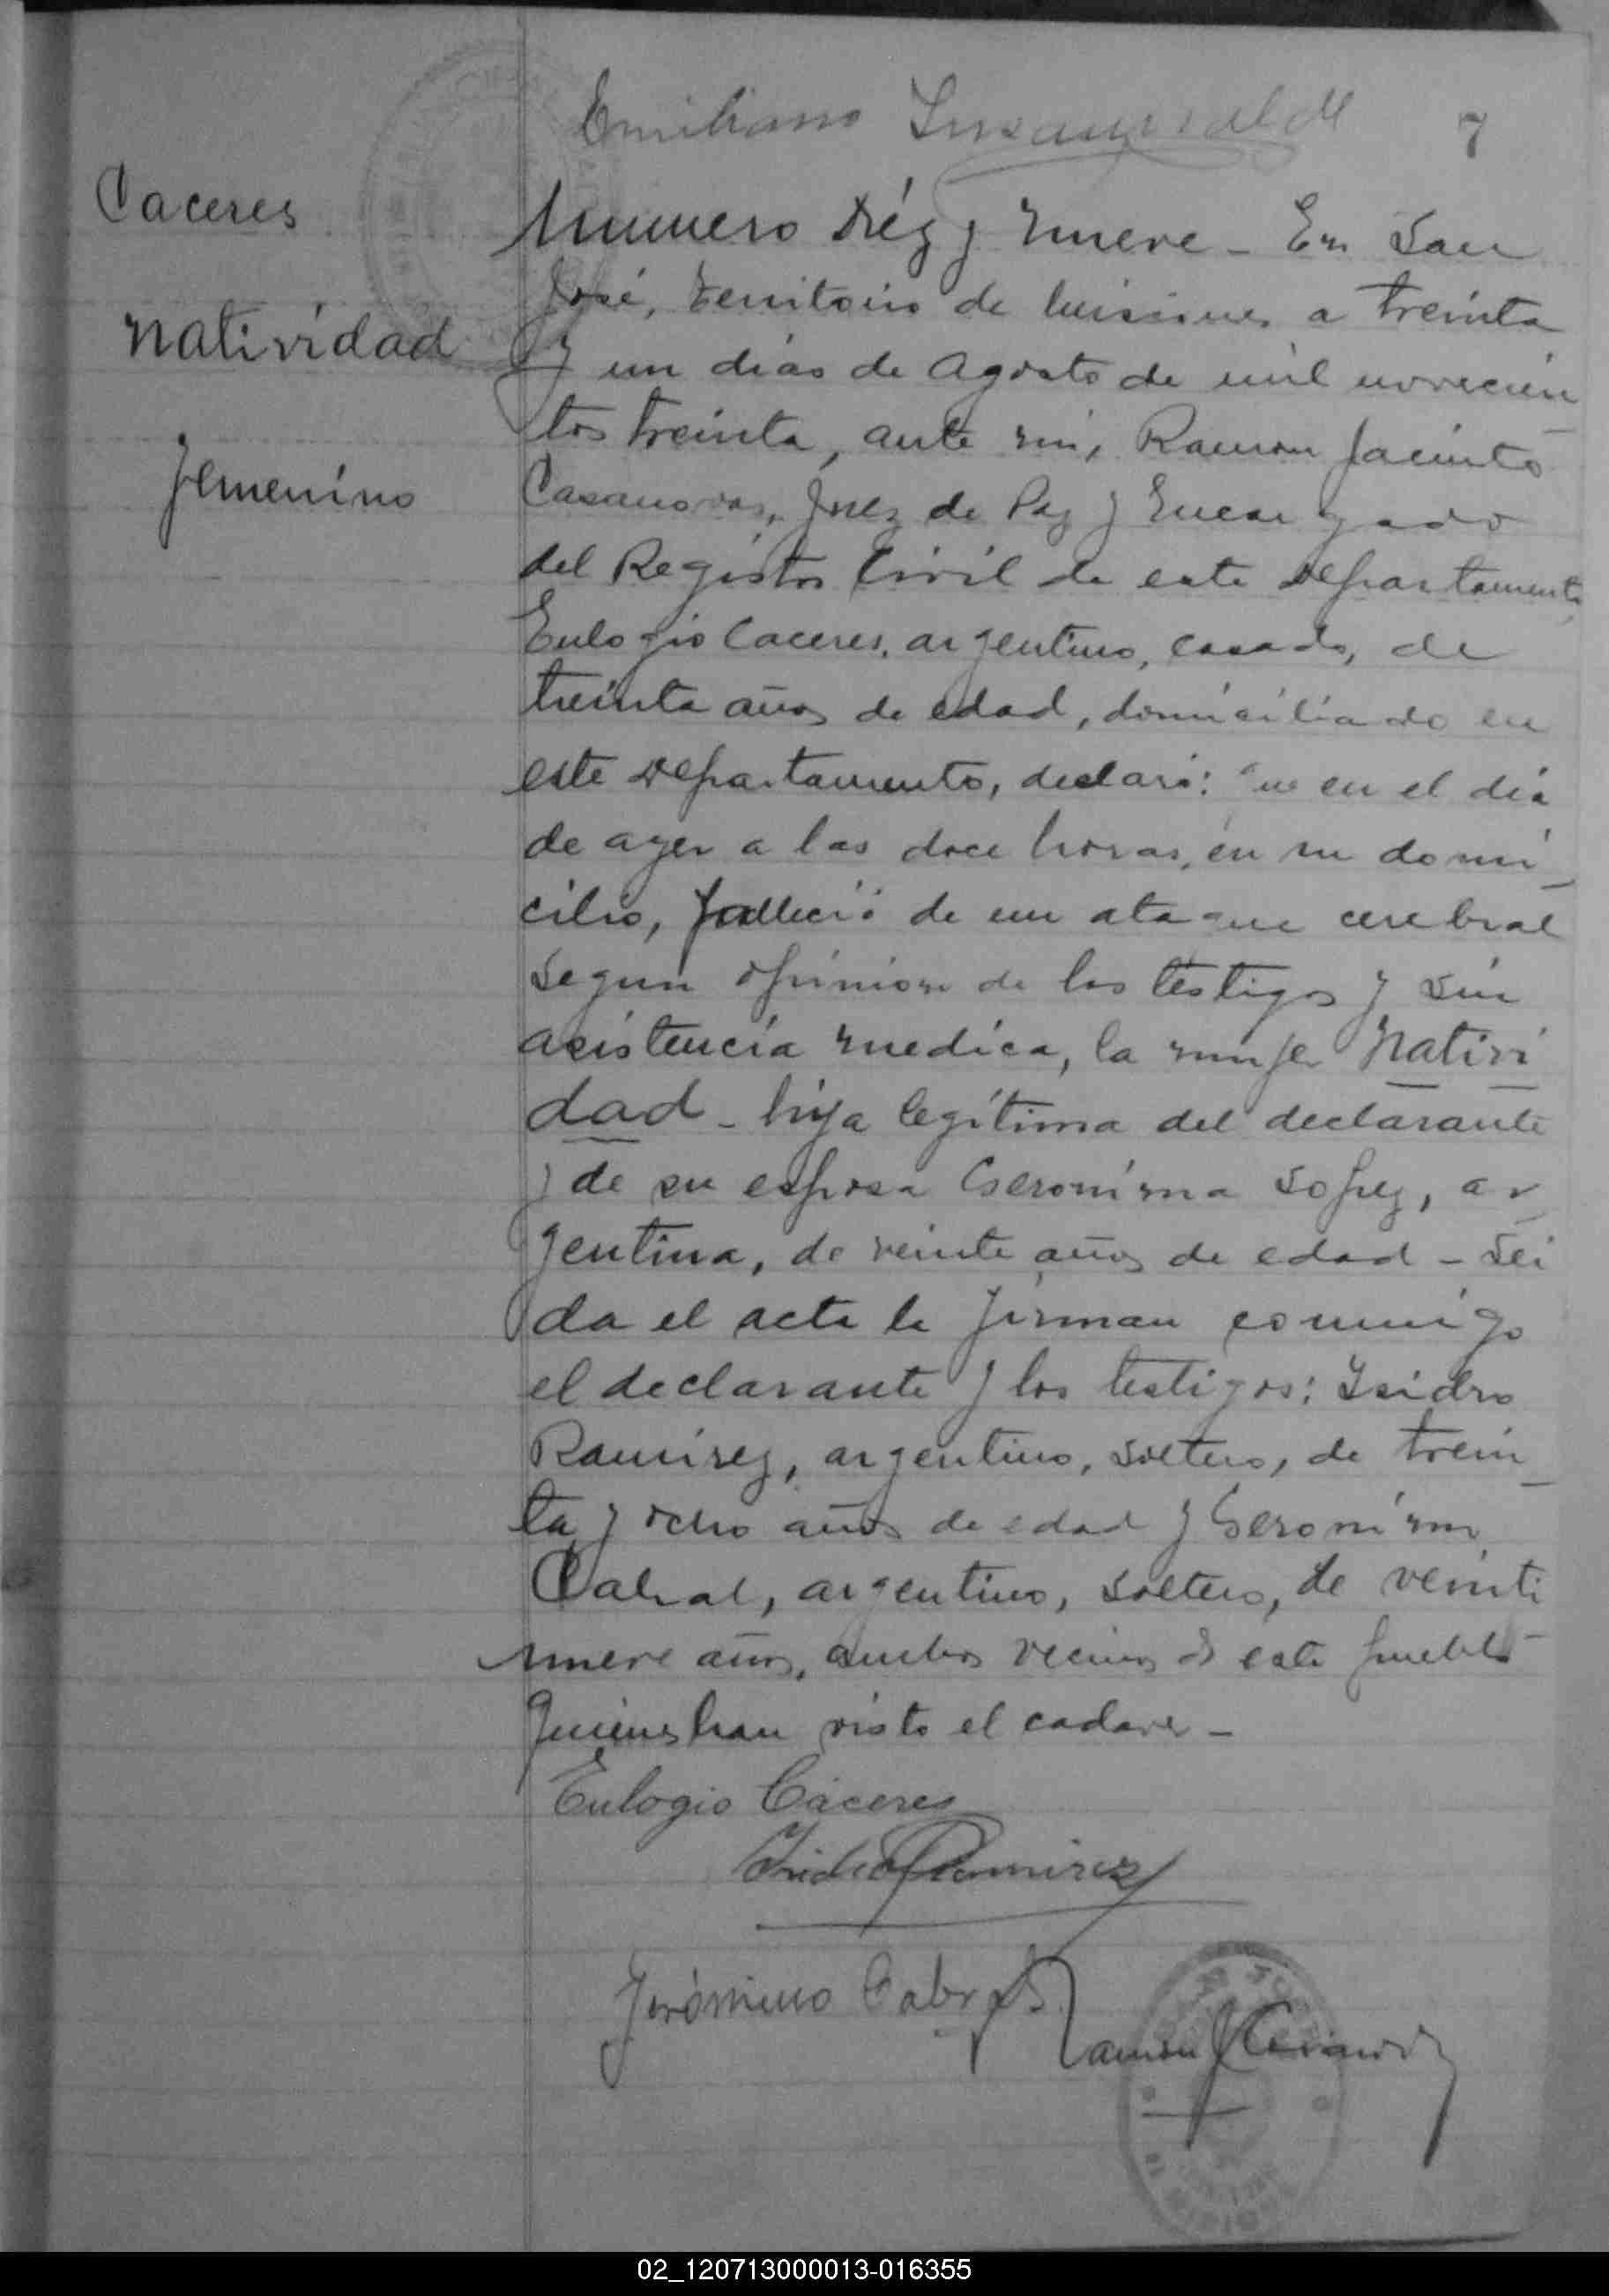 Emiliano Insaurralde
7
Caceres
Natividad
femenino
Numero Diéz y nueve - En San
José, territorio de Misiones a treinta
y un dias de Agosto de mil novecien
tos treinta, ante mi, Ramon Jacinto
Casanovas, Juez de Paz y Encargado
del Registro Civil de este Departamento
Eulogio Caceres, argentino, casado, de
treinta años de edad, domiciliado en
este Departamento, declaró: que en el dia
de ayer a las doce horas, en su domi
cilio, falleció de un ataque cerebral
segun opinion de los testigos y sin
asistencia medica, la mujer Nativi
dad - hija legítima del declarante
y de su esposa Geronima Lopez, ar
gentina, de veinte años de edad - Lei
da el acta la firman conmigo
el declarante y los testigos: Isidro
Ramirez, argentino, soltero, de trein
ta y ocho años de edad y Geronimo
Cabral, argentino, soltero, de veinti
nueve años, ambos vecinos de este pueblo
quienes han visto el cadaver -
Eulogio Cáceres
Isidro Ramirez
Jerónimo Cabral
Ramon J Casanovas
02_120713000013-016355